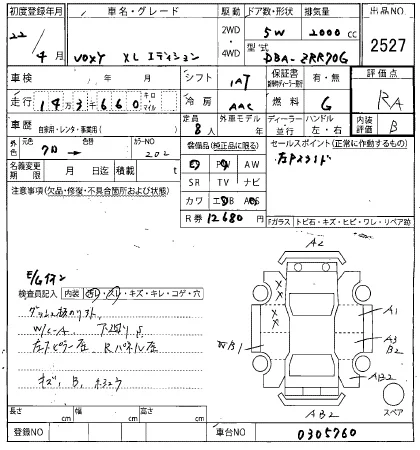 初度登録年月 車名・グレード 駆動 ドア数・形状 排気量 出品NO
22/4月 VOXY XLエディション 2WD 4WD 5W 2000cc 2527
型式 DBA-ZRR70G
車検 年 月 シフト IAT 保証書 有・無 評価点 RA
走行 14万3千660 キロ マイル 冷房 AAC 燃料 G
車歴 自家用・レンタ・事業用( ) 定員 8人 外車モデル 年 ディーラー 並行 ハンドル 左・右 内装評価 B
外色 元色 クロ → 色替 カラーNO 202
装備品(純正品に限る) セールスポイント(正常に動作するもの)
左Pスライド
名義変更期限 月 日迄 積載 t
PS PW AW
SR TV ナビ
カワ エアB ABS
R券 12680 円
注意事項(欠品・修復・不具合箇所および状態)
Fガラス トビ石・キズ・ヒビ・ワレ・リペア跡
検査員記入 内装 ヨゴレ・スレ・キズ・キレ・コゲ・穴
W/C-A 下廻りS
キズ、B、
A2
A1
A3
B2
AB2
AB2
スペア
長さ cm 幅 cm 高さ cm
登録NO 車台NO 0305760